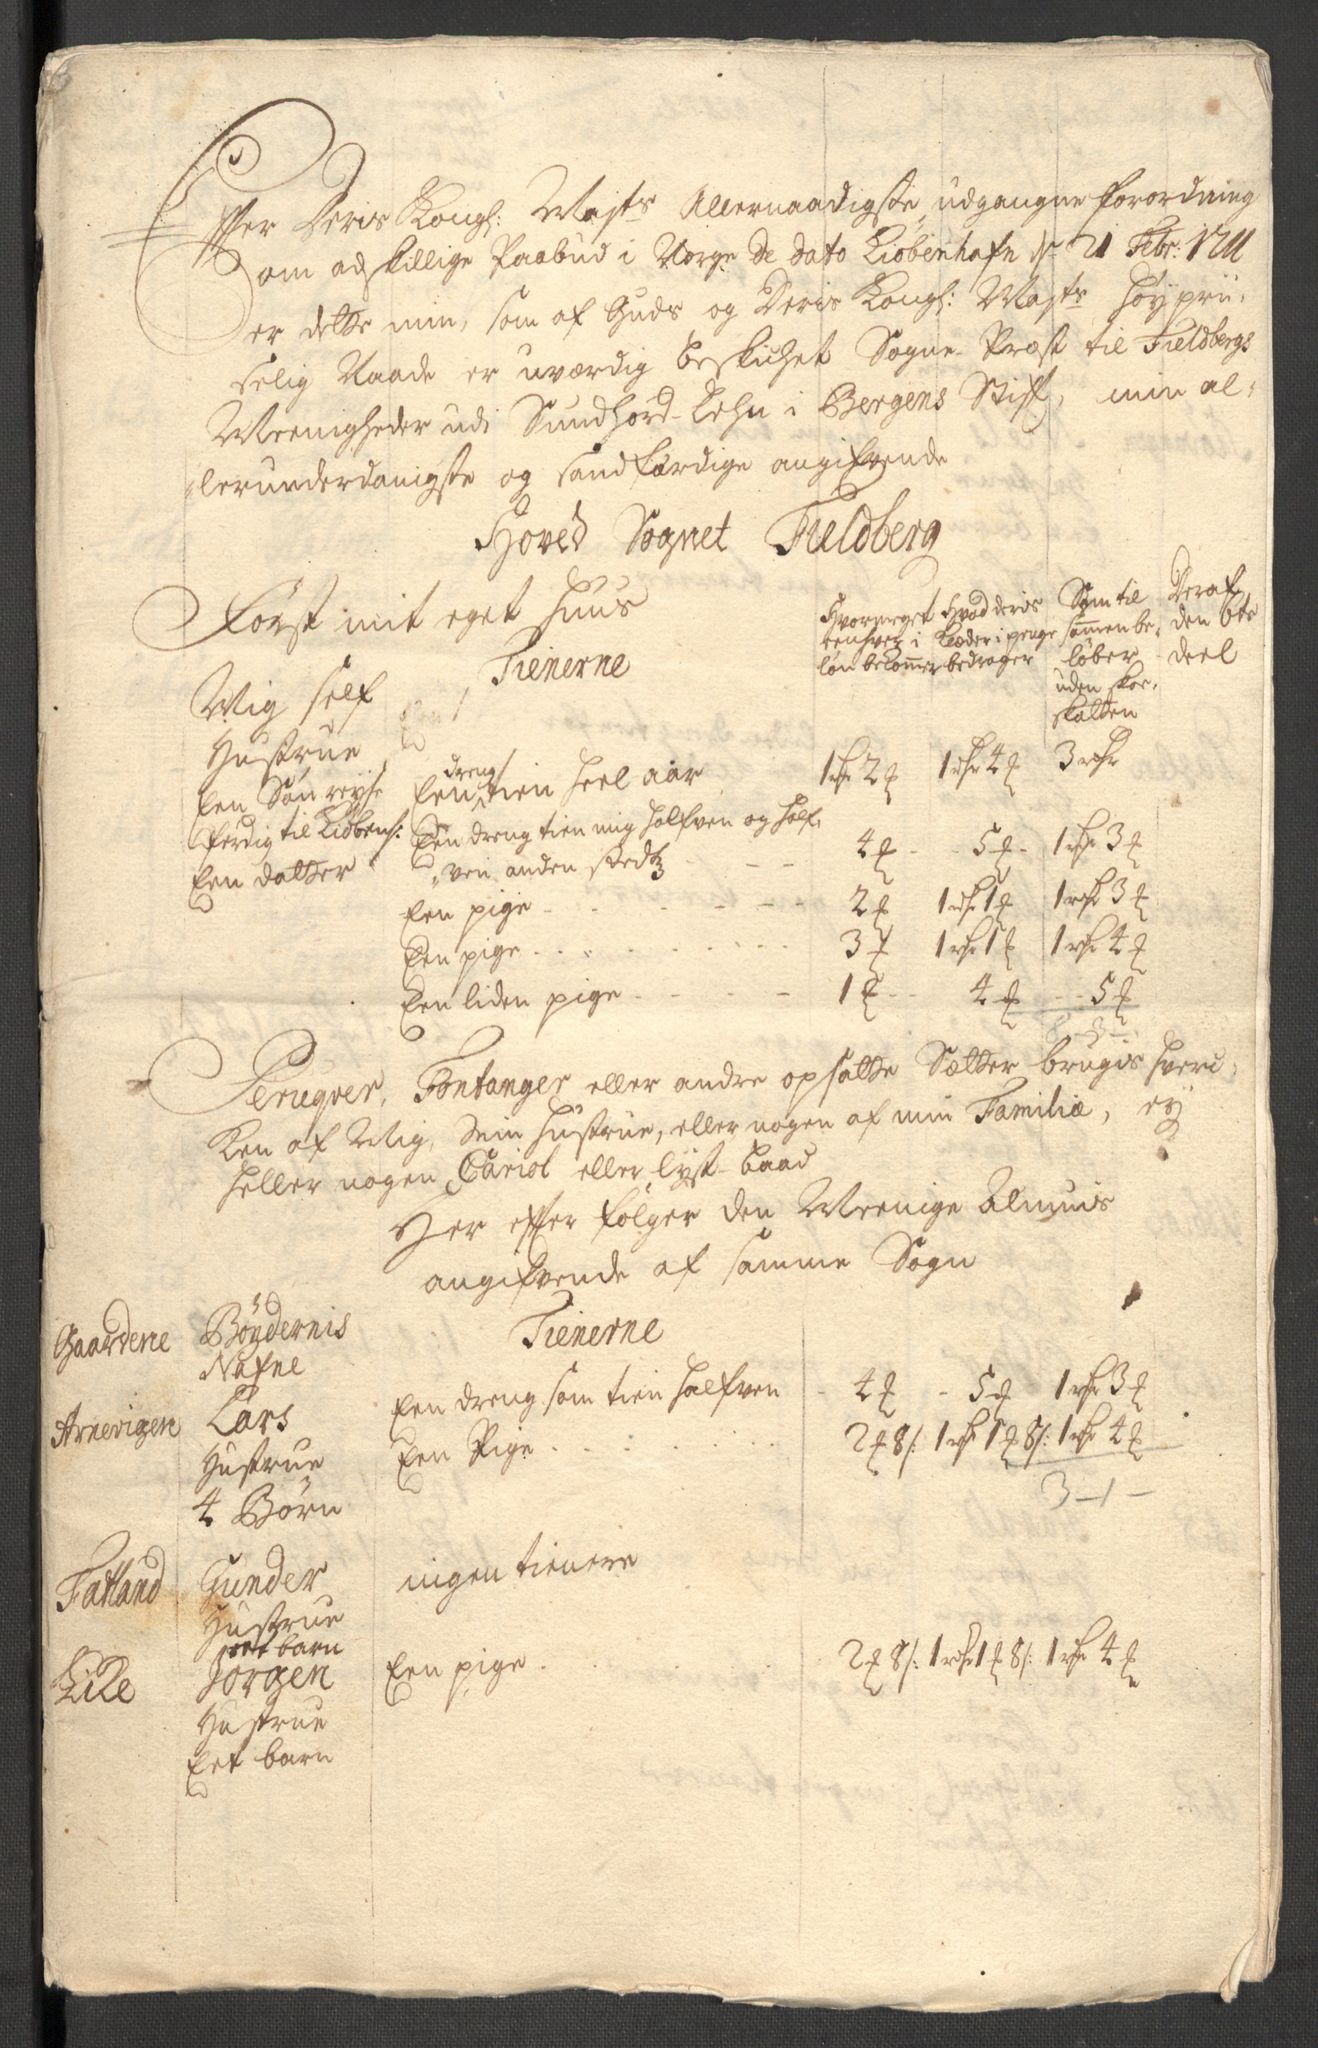 Efter Deris Kongl: Maÿts Allernaadigste udgangne forordning
om adskillige Paabud i Norge de dato Kiøbenhafn d. 21 Febr: 1711
er dette min, som af Guds og Deris Kongl: Mayts høypri-
selig Naade er uværdig beskichet Sogne-Præst til Fieldbergs
Meenigheder udi Sundhord-Lehn i Bergens Stift, min al-
lerunderdanigste og sandfærdige angifvende
Hoved Sognet Fieldberg
Først mit eget huus
Tienerne
Hvormeget
enhver i
løn bekommer
Hvad deris
Klæder i penge
bedrager
Som til
sammen be-
løber
uden skoe-
skatten
Deraf
den 6te
deel
Mig self
Hustrue
Een Søn reyse
ferdig til Kiøbenh:
Een datter
Een dreng tien heel aar 1 rdr 2 ₰ 1 rdr 4 ₰ 3 rdr
Een dreng tien mig halfven og half-
ven anden stedtz - - - 4 ₰ - - 5 ₰ - 1 rdr 3 ₰
Een pige - - - - - - 2 ₰ 1 rdr 1 ₰ 1 rdr 3 ₰
Een pige - - - - - - 3 ₰ 1 rdr 1 ₰ 1 rdr 4 ₰
Een liden pige - - - - - 1 ₰ - - 4 ₰ - - 5 ₰
Peruqver, Fontanger eller andre opsatte Sætter brugis hver-
ken af Mig, Min hustrue, eller nogen af min Familiæ, ey
heller nogen Cariol eller lyst-baad
Her efter følger den Meenige Almuis
angifvende af samme Sogn
Gaardene
Bøydernis
Nafne
Tienerne
Arnevigen
Lars
Hustrue
4 Børn
Een dreng som tien halfven - 4 ₰ - 5 ₰ 1 rdr 3 ₰
Een Pige - - - - - 2 ₰ 8 s: 1 rdr 1 ₰ 8 s: 1 rdr 4 ₰
3-1-
Fatland
Gunder
Hustrue
eet barn
ingen tienere
Lire
Jørgen
Hustrue
Eet barn
Een pige - - 2 ₰ 8 s: 1 rdr 1 ₰ 8 s: 1 rdr 4 ₰